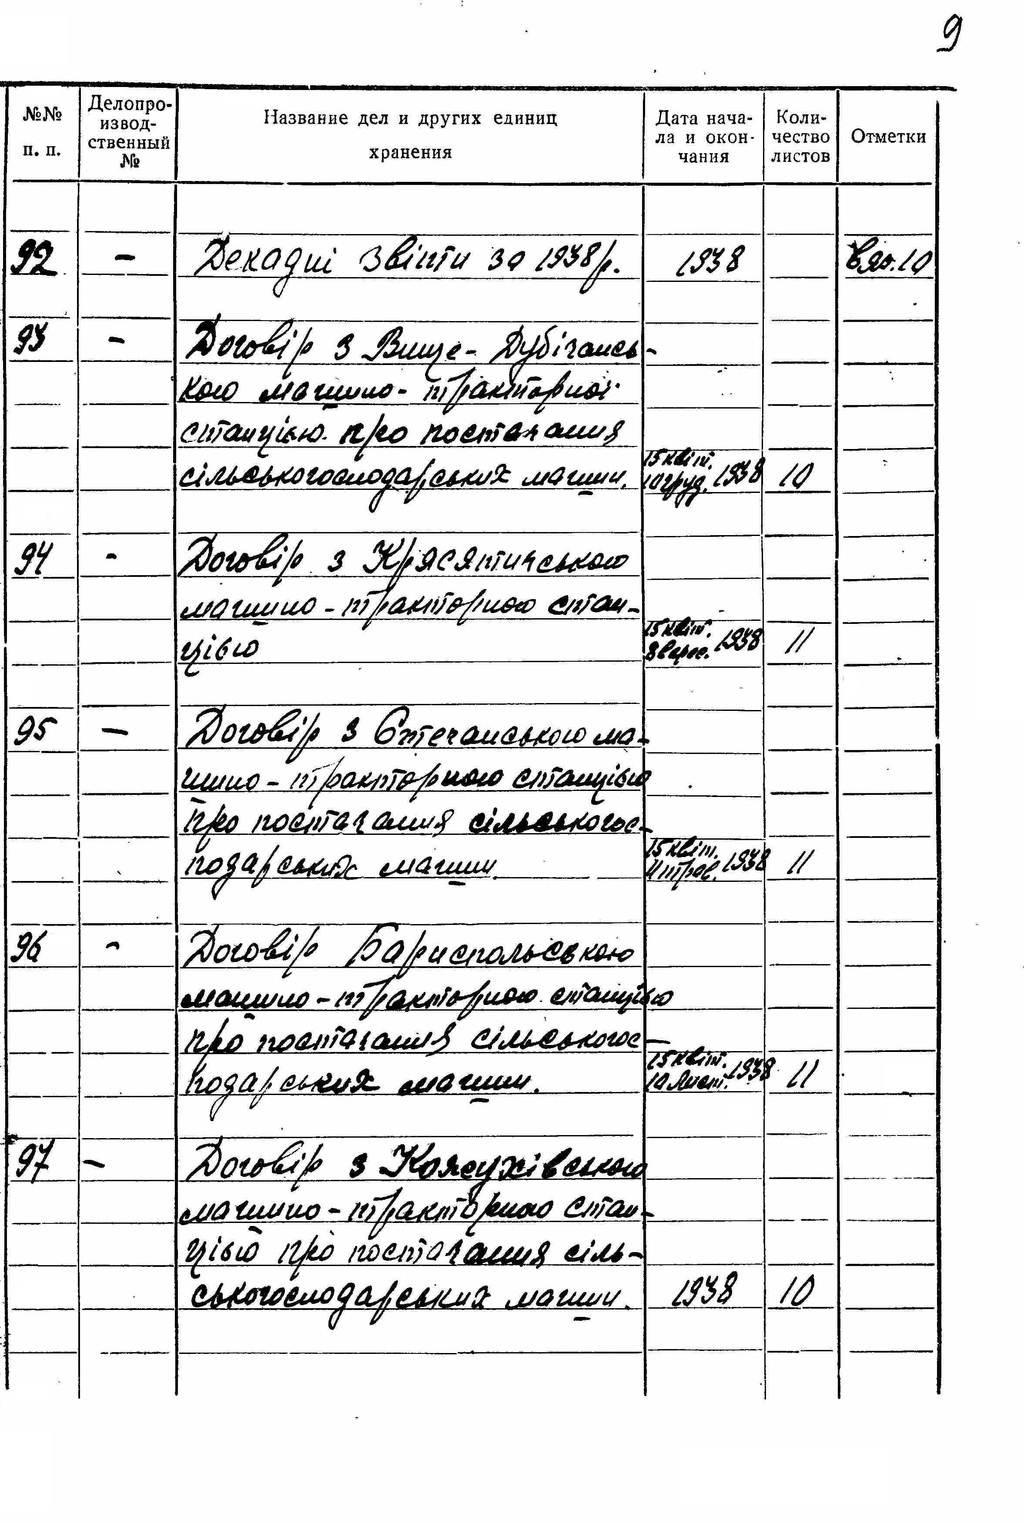 9
№№ п. п. Делопро-извод-ственный № Название дел и других единиц хранения Дата нача-ла и окон-чания Коли-чество листов Отметки
92 – Декадні звіти за 1938 р. 1938
93 – Договір з Вище-Дубічансь-
кою машино-тракторної
станцією про постачання
сільськогосподарських машин. 15 квіт. 10 груд. 1938 10
94 - Договір з Красятинською
машино-тракторною стан-
цією 15 квіт. 8 верес. 1938 11
95 – Договір з Єтечанською ма-
шино-тракторною станцією
про постачання сільськогос-
подарських машин. 15 квіт. 11 трав. 1938 11
96 - Договір Бариспольською
машино-тракторною станцією
про постачання сільськогос-
подарських машин. 15 квіт. 10 лист. 1938 11
97 – Договір з Кожухівською
машино-тракторною стан-
цією про постачання сіль-
ськогосподарських машин. 1938 10